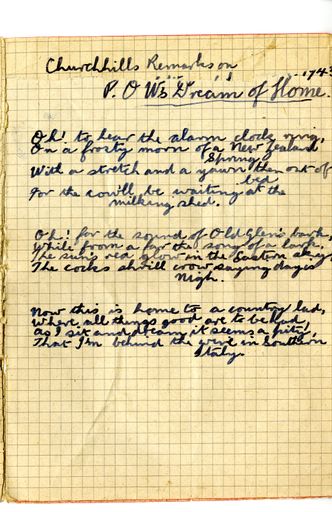 Churchhills Remarks on
P.O.W's Dream of Home.
Oh! to hear the alarm clock ring,
On a frosty morn of a New Zealand
Spring
With a stretch and a yawn then out of
bed
For the cow'll be waiting at the
milking shed.
Oh! for the sound of Old Glen's bark,
While from a far the song of a lark,
The sun's red glow in the Eastern sky,
The cocks shrill crow saying day is
Nigh.
Now this is home to a country lad,
Where all things good are to be had,
As I sit and dream it seems a pity,
That I'm behind the wire in Southern
Italy.